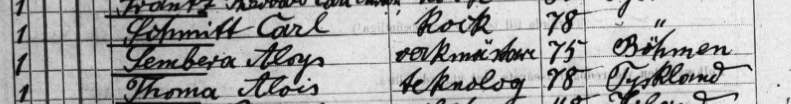 1 Schmitt Carl Kock 78 "
1 Sembera Aloys verkmästare 75 Böhmen
1 Thoma Alois teknolog 78 Tyskland